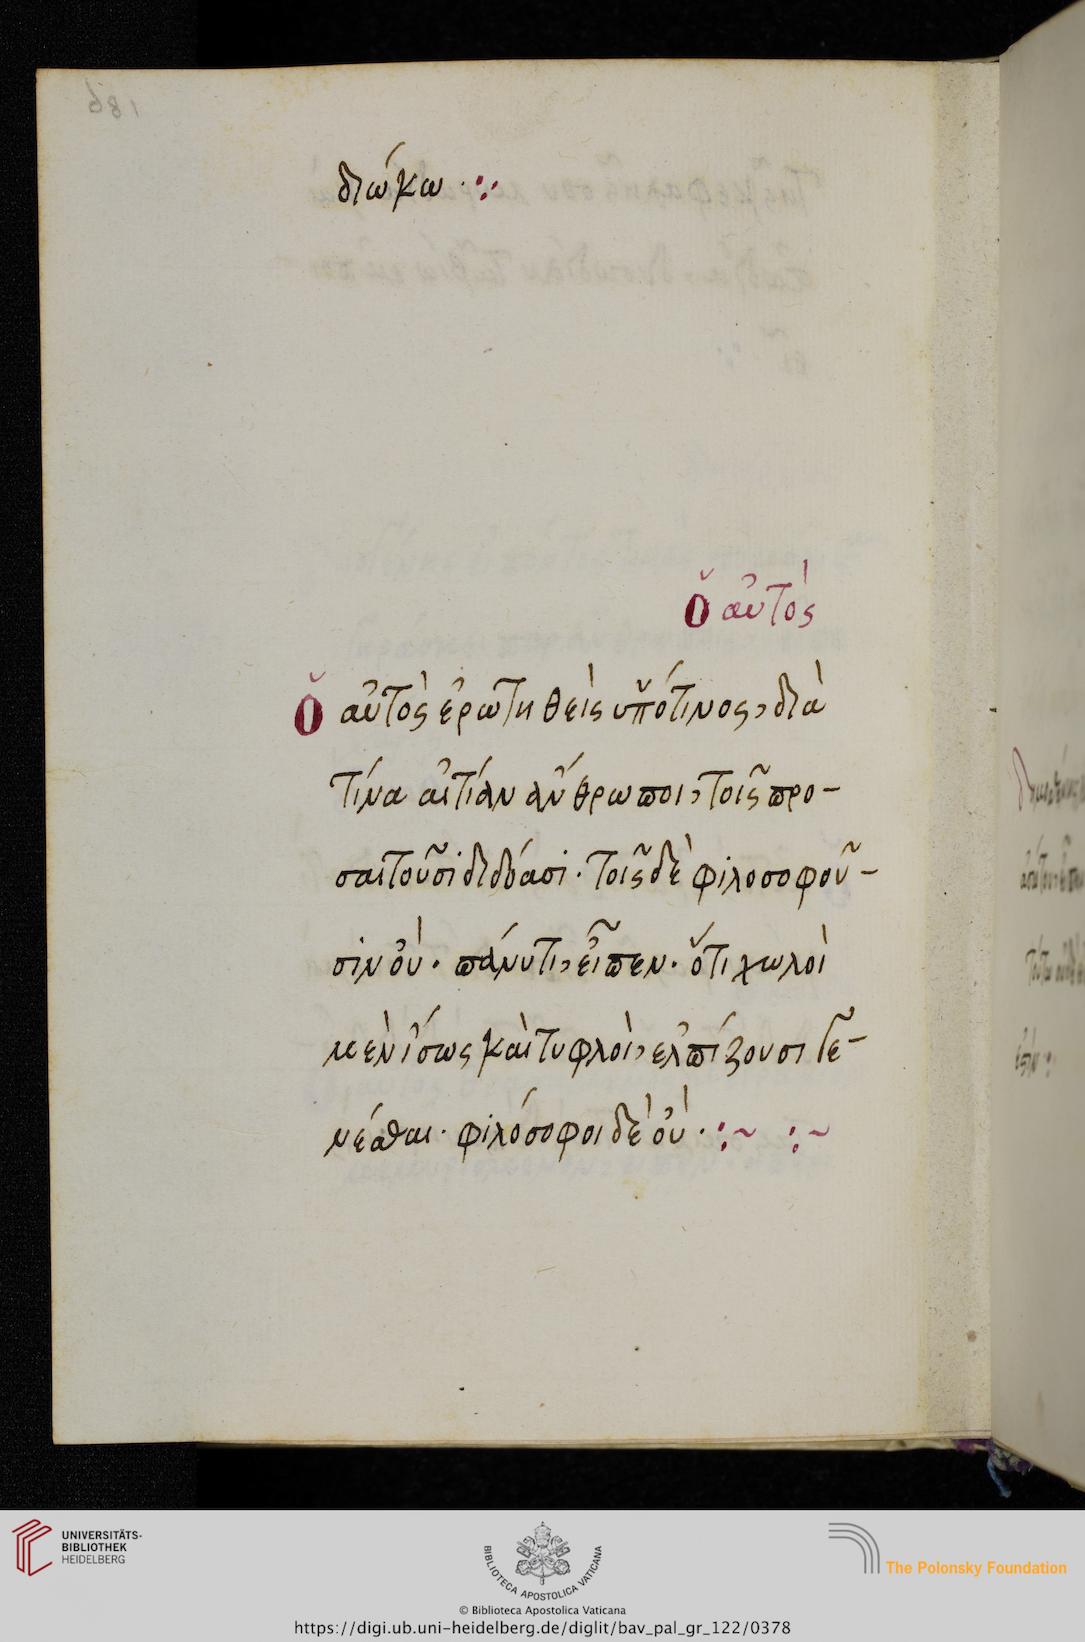 186
διώκω · ⁖
Ὁ αὐτὸς
Ὁ αὐτὸς ἐρωτηθεὶς ὑπό τινος, διὰ
τίνα αἰτίαν ἄνθρωποι, τοῖς προ-
σαιτοῦσι διδόασι · τοῖς δὲ φιλοσοφοῦ-
σιν οὐ · πάνυ τι, εἶπεν · ὅτι χωλοὶ
μὲν ἴσως καὶ τυφλοὶ, ἐλπίζουσι γε-
νέσθαι · φιλόσοφοι δὲ οὐ · :~ :~
UNIVERSITÄTS-
BIBLIOTHEK
HEIDELBERG
BIBLIOTECA APOSTOLICA VATICANA
The Polonsky Foundation
© Biblioteca Apostolica Vaticana
https://digi.ub.uni-heidelberg.de/diglit/bav_pal_gr_122/0378